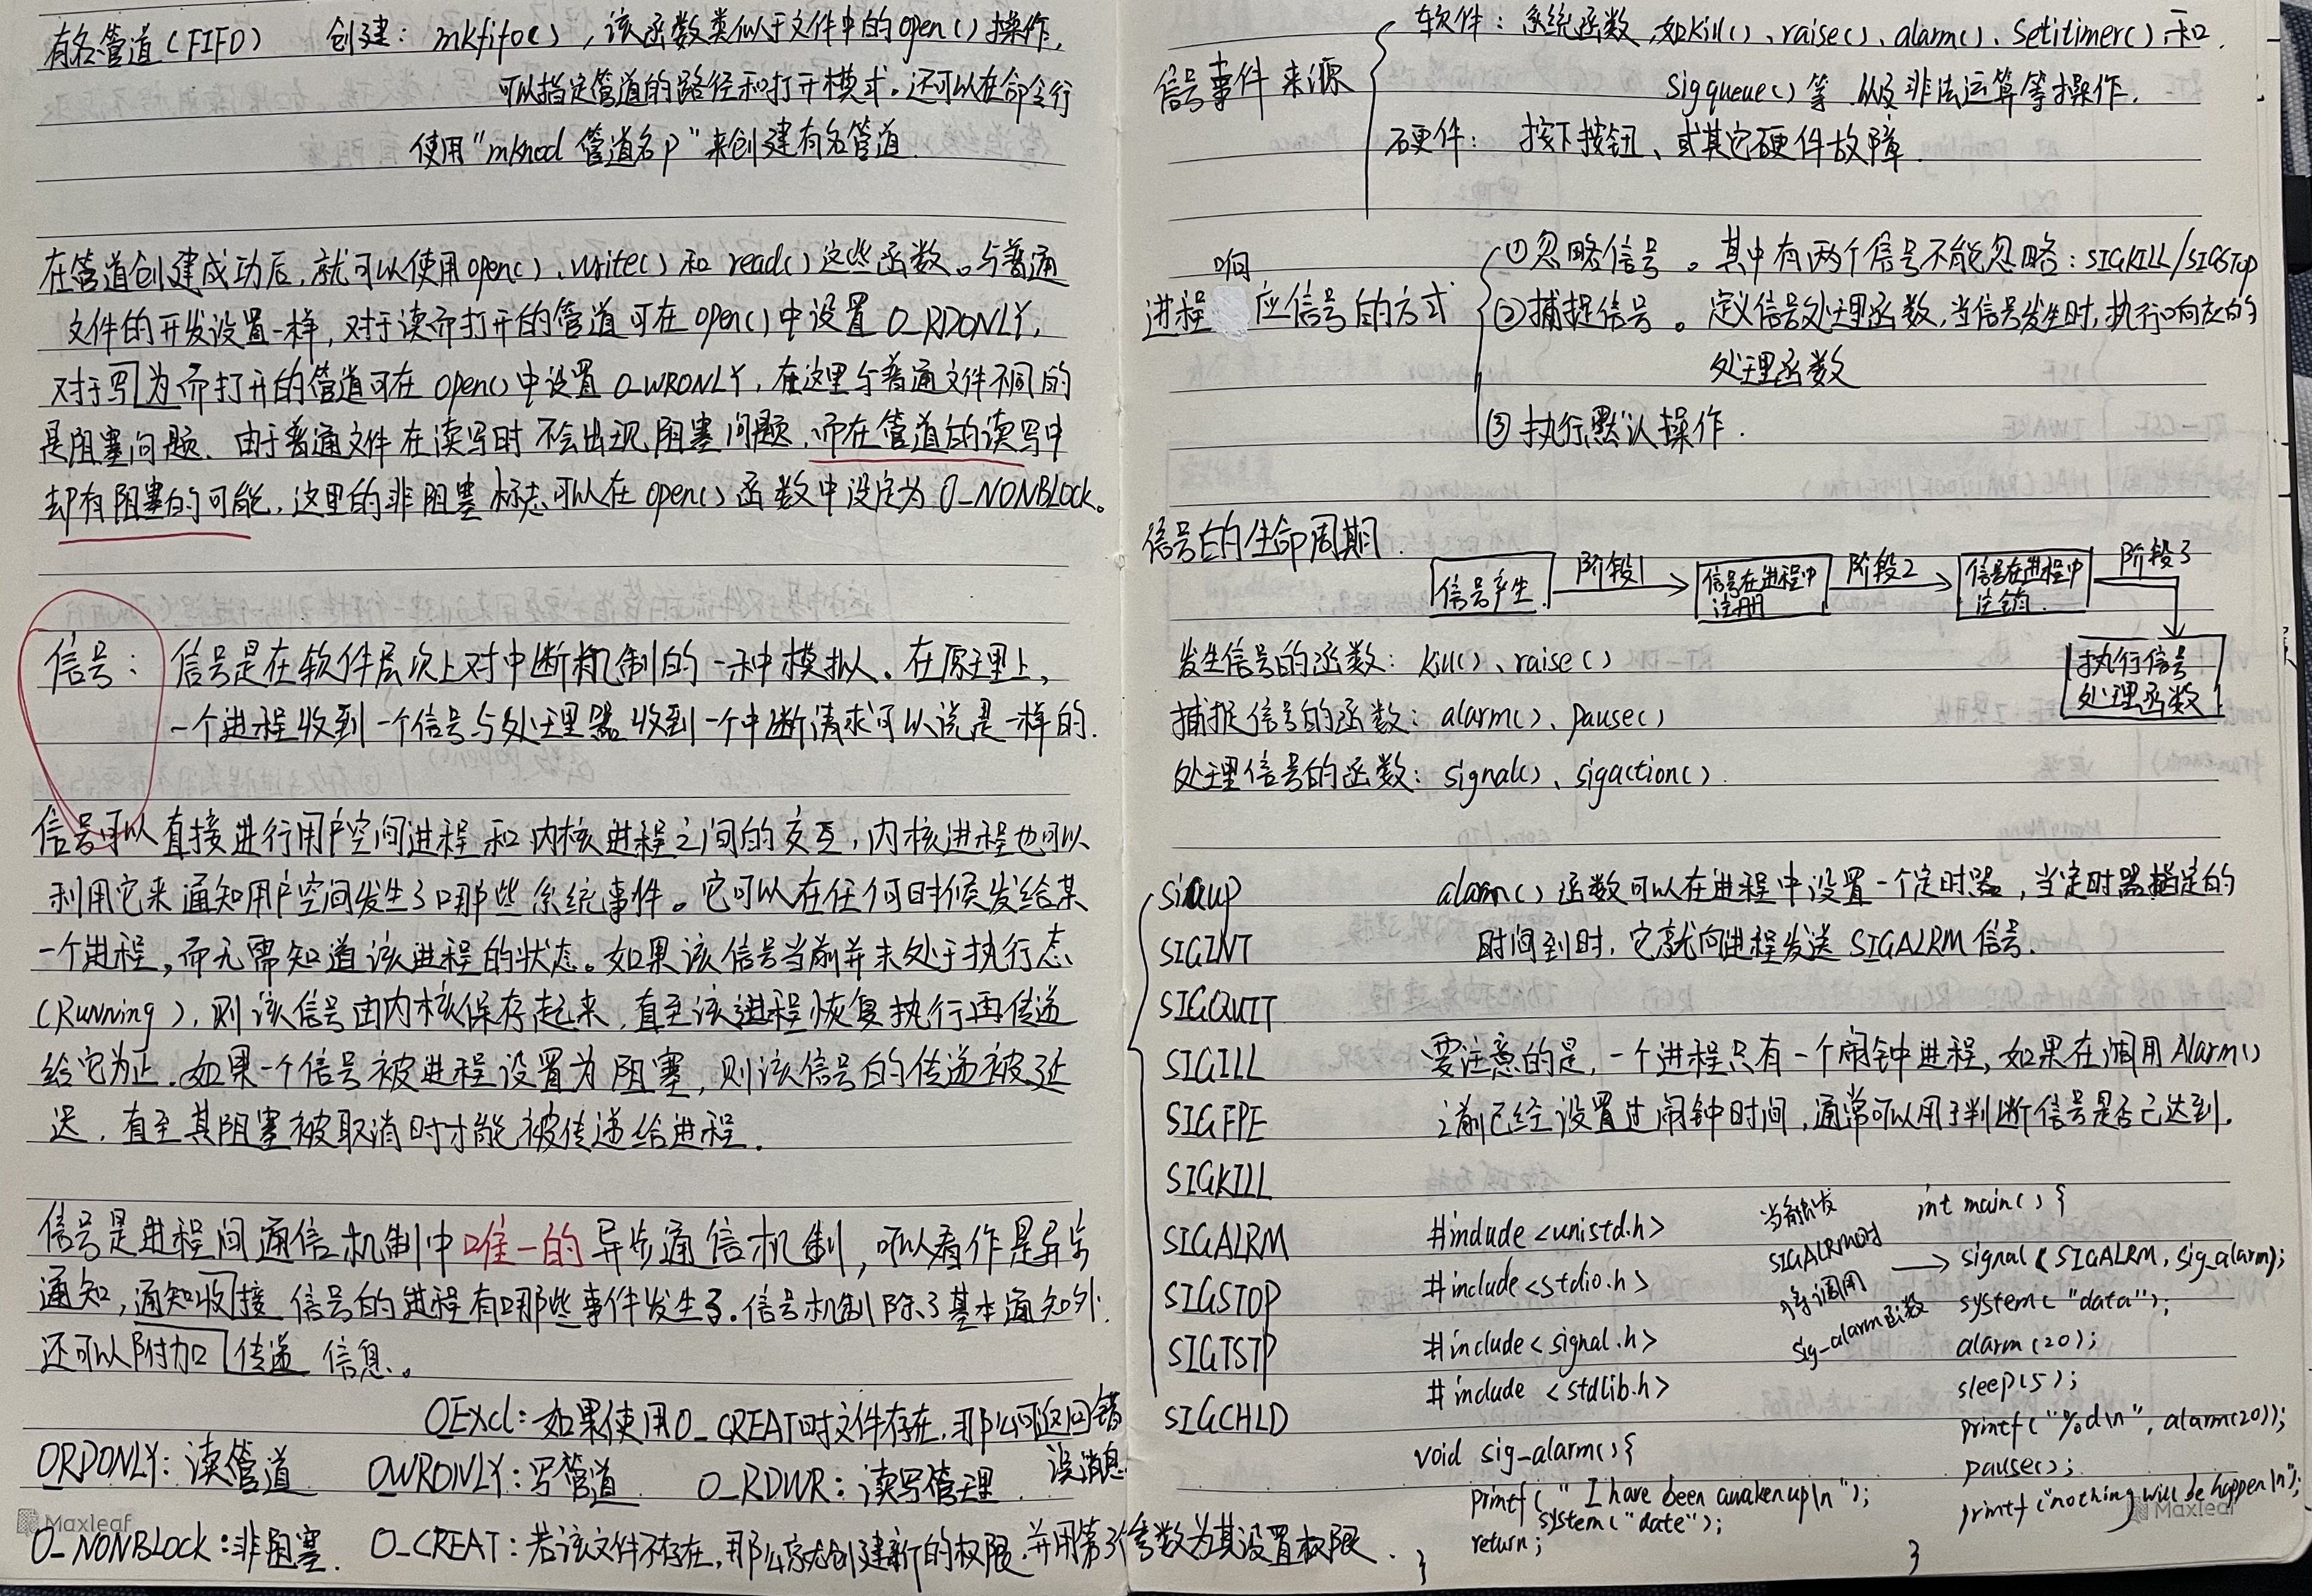 有名管道(FIFO) 创建: mkfifo(), 该函数类似于文件中的open()操作,
可以指定管道的路径和打开模式。还可以在命令行
使用"mknod 管道名p"来创建有名管道.
在管道创建成功后,就可以使用open()、write()和read()这些函数。与普通
文件的开发设置一样,对于读而打开的管道可在open()中设置O_RDONLY,
对于写为而打开的管道可在open()中设置O_WRONLY,在这里与普通文件不同的
是阻塞问题、由于普通文件在读写时不会出现阻塞问题,而在管道的读写中
却有阻塞的可能,这里的非阻塞标志可以在open()函数中设定为O_NONBLOCK。
信号: 信号是在软件层次上对中断机制的一种模拟。在原理上,
一个进程收到一个信号与处理器收到一个中断请求可以说是一样的.
信号可以直接进行用户空间进程和内核进程之间的交互,内核进程也可以
利用它来通知用户空间发生了哪些系统事件。它可以在任何时候发给某
一个进程,而无需知道该进程的状态。如果该信号当前并未处于执行态
(Running),则该信号由内核保存起来,直至该进程恢复执行再传递
给它为止.如果一个信号被进程设置为阻塞,则该信号的传递被延
迟,直至其阻塞被取消时才能被传递给进程.
信号是进程间通信机制中唯一的异步通信机制,可以看作是异步
通知,通知收接信号的进程有哪些事件发生了.信号机制除了基本通知外.
还可以附加传递信息.。
O_Excl:如果使用O_CREAT时文件存在,那么可返回错
误消息
O_RDONLY: 读管道 O_WRONLY:写管道 O_RDWR:读写管理.
O_NONBLOCK:非阻塞. O_CREAT:若该文件不存在,那么就创建新的权限.并用第3个参数为其设置权限.
Maxleaf
信号事件来源
软件: 系统函数,如kill()、raise()、alarm()、Setitimer()和.
Sigqueue()等 以及非法运算等操作.
硬件: 按下按钮、或其它硬件故障.
进程响应信号的方式
①忽略信号。其中有两个信号不能忽略:SIGKILL/SIGSTOP
②捕捉信号。定义信号处理函数,当信号发生时,执行响应的
处理函数
③执行默认操作.
信号的生命周期.
信号产生. 阶段1 信号在进程中注册 阶段2 信号在进程中注销. 阶段3
执行信号
处理函数
发生信号的函数: kill()、raise()
捕捉信号的函数: alarm()、pause()
处理信号的函数: signal()、sigaction().
SIGINT
SIGQUIT
SIGILL
SIGFPE
SIGKILL
SIGALRM
SIGSTOP
SIGTSTP
SIGCHLD
alarm()函数可以在进程中设置一个定时器,当定时器指定的
时间到时,它就向进程发送SIGALRM信号.
要注意的是,一个进程只有一个闹钟进程,如果在调用Alarm()
之前已经设置过闹钟时间,通常可以用于判断信号是否已达到.
#include <unistd.h>
#include <stdio.h>
#include < signal.h>
# include <stdlib.h>
void sig_alarm(){
printf(" I have been awaken up\n");
system("date");
return;
}
当触发
SIGALRM时
将调用
sig_alarm函数
int main() {
signal(SIGALRM, sig_alarm);
system("data");
alarm(20);
sleep(5);
printf("%d\n", alarm(20));
pause();
printf("nothing will be happen\n");
}
Maxleaf